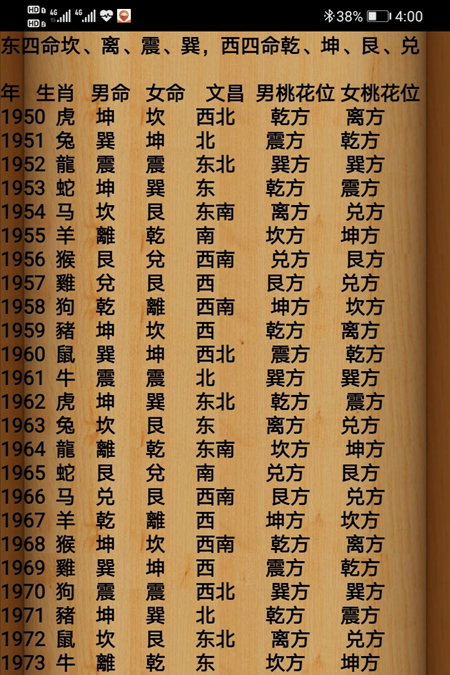 HD 1 4G 4G 38% 4:00
HD 2
东四命坎、离、震、巽，西四命乾、坤、艮、兑
年 生肖 男命 女命 文昌 男桃花位 女桃花位
1950 虎 坤 坎 西北 乾方 离方
1951 兔 巽 坤 北 震方 乾方
1952 龍 震 震 东北 巽方 巽方
1953 蛇 坤 巽 东 乾方 震方
1954 马 坎 艮 东南 离方 兑方
1955 羊 離 乾 南 坎方 坤方
1956 猴 艮 兌 西南 兑方 艮方
1957 雞 兌 艮 西 艮方 兑方
1958 狗 乾 離 西南 坤方 坎方
1959 豬 坤 坎 西 乾方 离方
1960 鼠 巽 坤 西北 震方 乾方
1961 牛 震 震 北 巽方 巽方
1962 虎 坤 巽 东北 乾方 震方
1963 兔 坎 艮 东 离方 兑方
1964 龍 離 乾 东南 坎方 坤方
1965 蛇 艮 兌 南 兑方 艮方
1966 马 兑 艮 西南 艮方 兑方
1967 羊 乾 離 西 坤方 坎方
1968 猴 坤 坎 西南 乾方 离方
1969 雞 巽 坤 西 震方 乾方
1970 狗 震 震 西北 巽方 巽方
1971 豬 坤 巽 北 乾方 震方
1972 鼠 坎 艮 东北 离方 兑方
1973 牛 離 乾 东 坎方 坤方